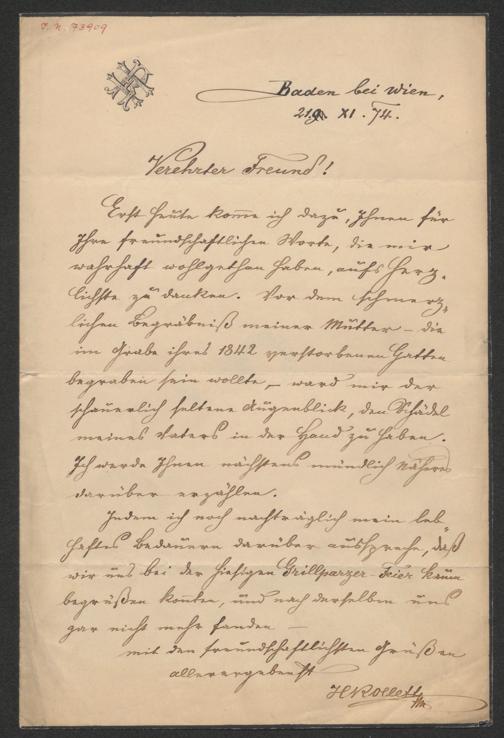 I. N. 73909
Baden bei Wien,
21. XI. 74.
Verehrter Freund!
Erst heute komme ich dazu, Ihnen für
Ihre freundschaftlichen Worte, die mir
wahrhaft wohlgethan haben, aufs Herz-
lichste zu danken. Vor dem schmerz-
lichen Begräbniß meiner Mutter – die
im Grabe ihres 1842 verstorbenen Gatten
begraben sein wollte –, ward mir der
schauerlich seltene Augenblick, den Schädel
meines Vaters in der Hand zu haben.
Ich werde Ihnen nächstens mündlich Näheres
darüber erzählen.
Indem ich noch nachträglich mein leb-
haftes Bedauern darüber ausspreche, daß
wir uns bei der hiesigen Grillparzer-Feier kaum
begrüßen konnten, und nach derselben uns
gar nicht mehr fanden –
mit den freundschaftlichsten Grüßen
allerergebenst
HRollett